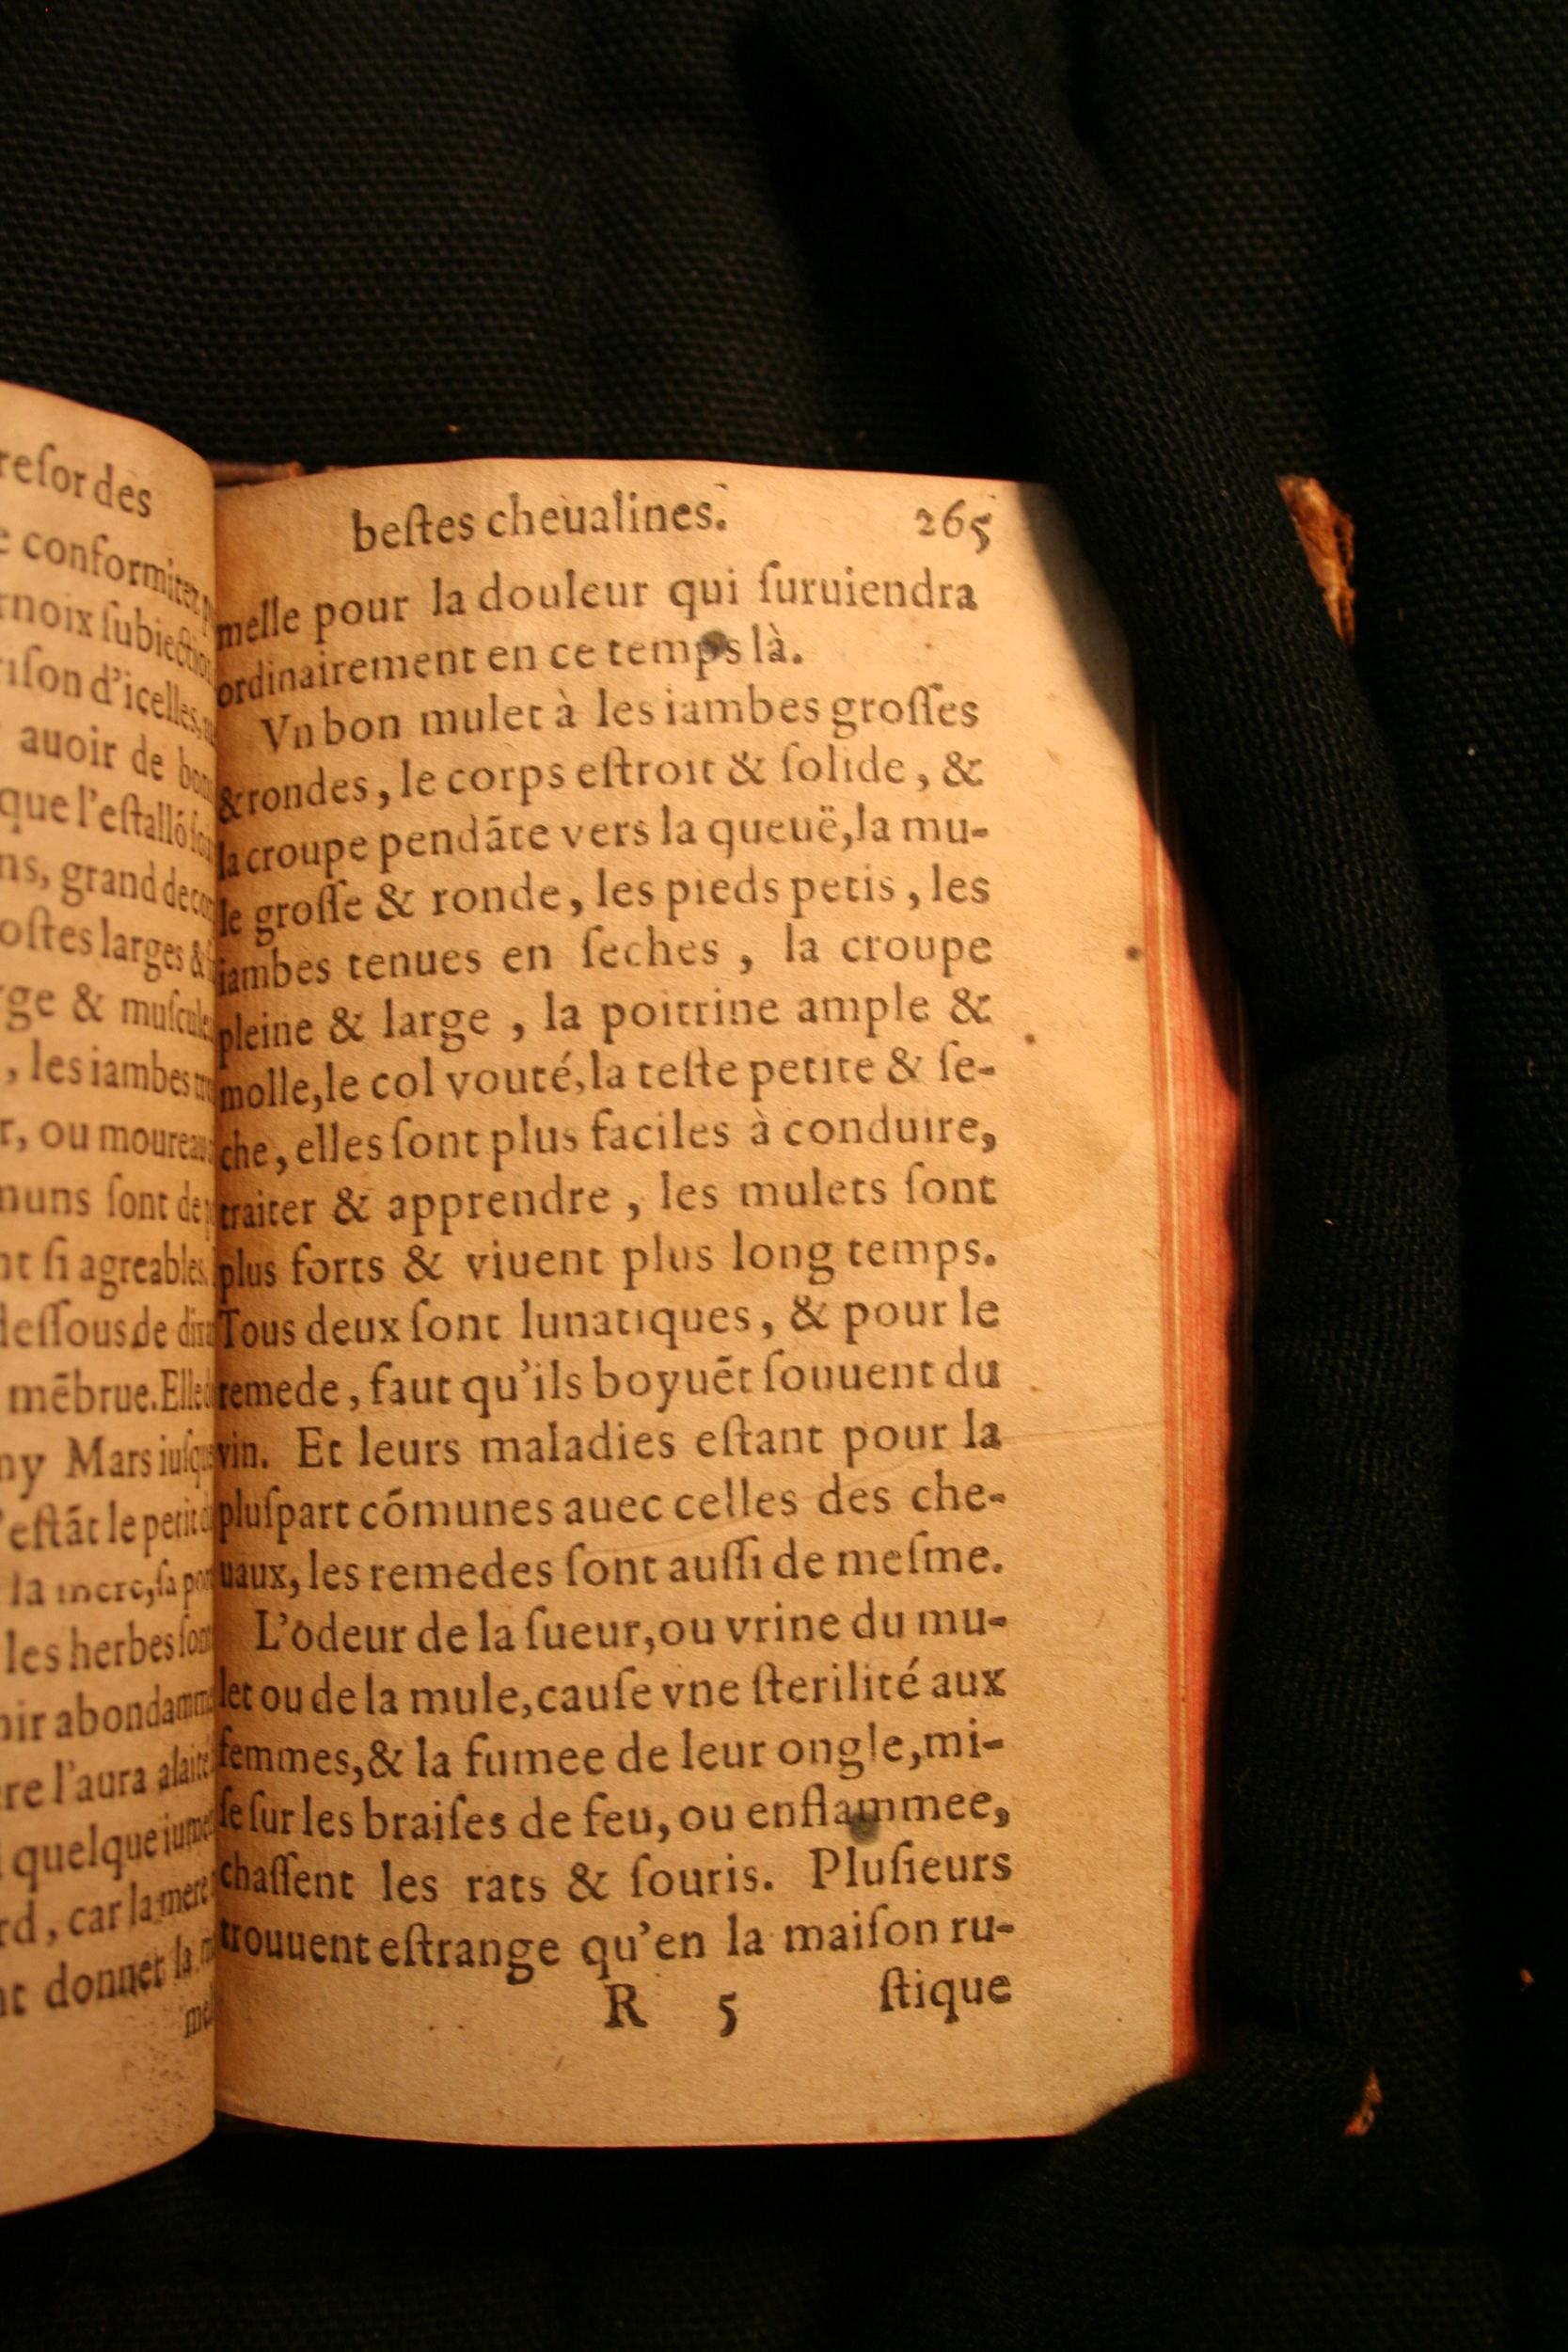 resor des
conformitez
rnoix subiection
d'icelles
auoir de
que l'estallõ
ns, grand de
ostes larges &
rge & muscule
, les iambes
r, ou moureau
muns sont de
nt si agreables.
dessous, de
mẽbrue. Elle
ny Mars iusque
estãt le petit
la mere, sa
les herbes sont
nir abondamme
re l'aura alaité
quelque iument
rd, car la mere
nt donner la
me
beſtes cheualines. 265
melle pour la douleur qui ſuruiendra
ordinairement en ce temps là.
Vn bon mulet à les iambes groſſes
& rondes, le corps eſtroit & ſolide, &
la croupe pendãte vers la queuë, la mu-
le groſſe & ronde, les pieds petis, les
iambes tenues en ſeches, la croupe
pleine & large, la poitrine ample &
molle, le col vouté, la teſte petite & ſe-
che, elles ſont plus faciles à conduire,
traiter & apprendre, les mulets ſont
plus forts & viuent plus long temps.
Tous deux ſont lunatiques, & pour le
remede, faut qu'ils boyuẽt ſouuent du
vin. Et leurs maladies eſtant pour la
pluſpart cõmunes auec celles des che-
uaux, les remedes ſont auſſi de meſme.
L'odeur de la ſueur, ou vrine du mu-
let ou de la mule, cauſe vne ſterilité aux
femmes, & la fumee de leur ongle, mi-
ſe ſur les braiſes de feu, ou enflammee,
chaſſent les rats & ſouris. Pluſieurs
trouuent eſtrange qu'en la maiſon ru-
R 5 ſtique